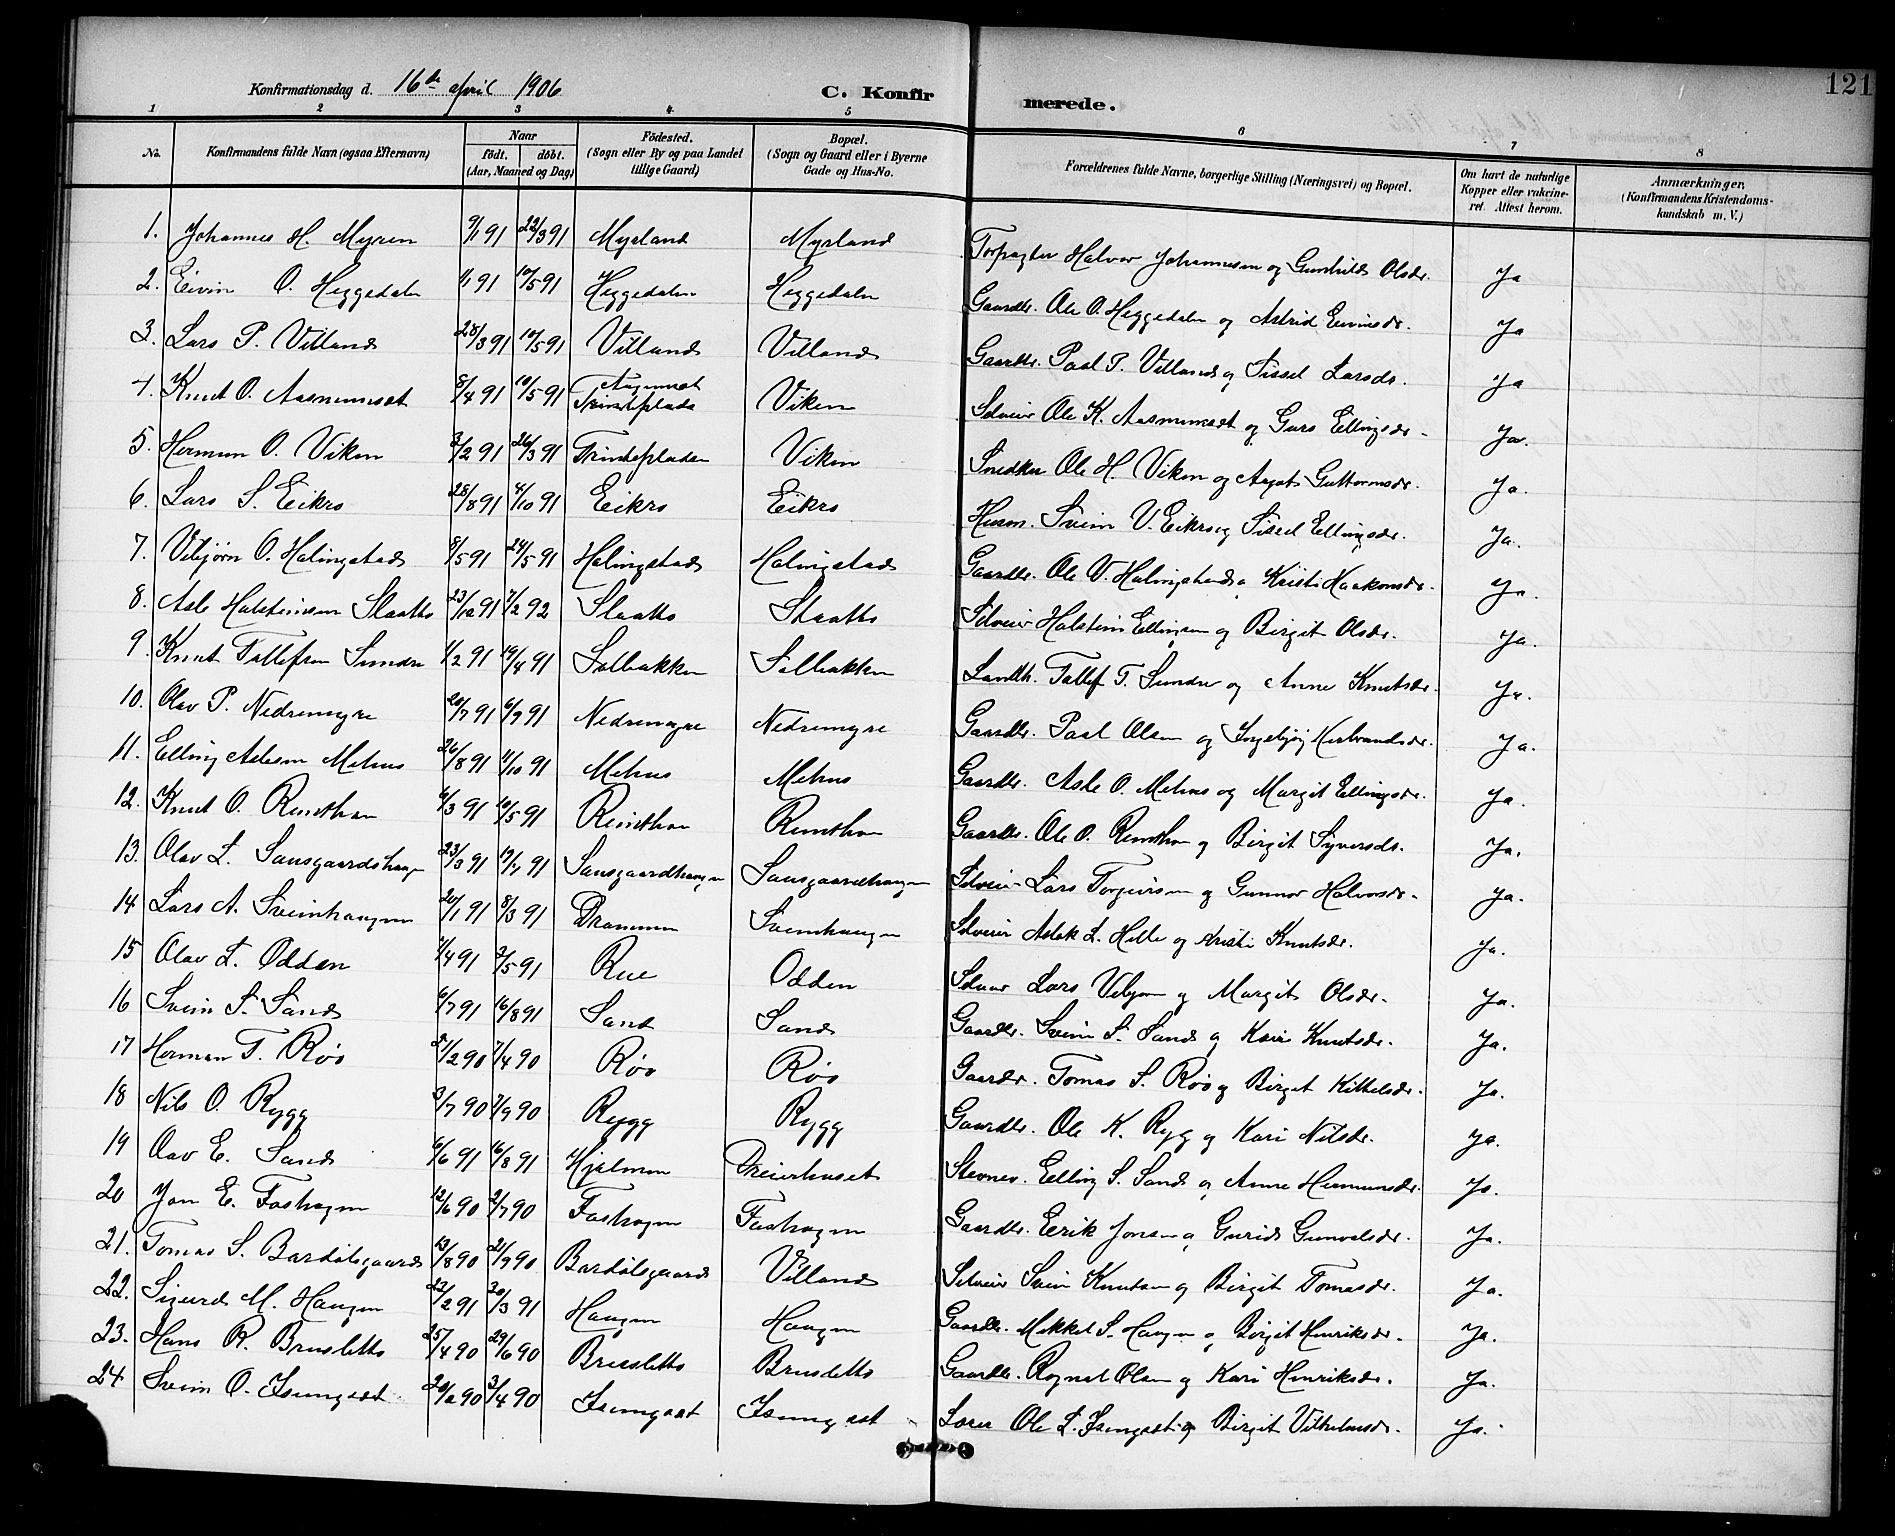 121
Konfirmationsdag d. 16de april 1906
C. Konfirmerede.
1 2 3 4. 5 6 7 8
No. Konfirmandens fulde Navn (ogsaa Efternavn) Naar født. døbt. (Aar, Maaned og Dag) Fødested. (Sogn eller By og paa Landet tillige Gaard) Bopæl. (Sogn og Gaard eller i Byerne Gade og Hus-No. Forældrenes fulde Navne, borgerlige Stilling (Næringsvei) og Bopæl. Om havt de naturlige Kopper eller vakcineret. Attest herom. Anmærkninger. (Konfirmandens Kristendomskundskab m. V.)
1. Johannes H. Myren 9/1 91 22/3 91 Myrland Myrland Halvor Johannesen og Gunhild Olsdr. Ja
2. Eivin O. Heggedalen 1/1 91 10/5 91 Heggedalen Heggedalen Gaardbr. Ole O. Heggedalen og Astrid Eivinsdr. Ja
3. Lars P. Villand 28/3 91 10/5 91 Villand Villand Gaardbr. Paal P. Villand og Sissel Larsdr. Ja
4. Knut O. Aasmunset 8/4 91 10/5 91 Viken Selveier Ole K. Aasmunset og Guro Ellingsdr. Ja.
5. Herman O. Viken 3/2 91 26/3 91 Trinteflaaden Viken Snedker Ole H. Viken og Aagot Guttormsdr. Ja.
6. Lars S. Eikro 28/8 91 4/10 91 Eikro Eikro Husm. Svein V. Eikro og Sissel Ellingsdr. Ja.
7. Vebjørn O. Halingstad 8/5 91 24/5 91 Halingstad Halingstad Gaardbr. Ole V. Halingstad og Kristi Haakonsdr. Ja.
8. Asle Halsteinsen Slaatto 23/12 91 7/2 92 Slaatto Slaatto Selveier Halstein Ellingsen og Birgit Olsdr. Ja.
9. Knut Tollefsen Sundre 1/2 91 19/4 91 Solbakken Solbakken Landh. Tollef T. Sundre og Anne Knutsdr. Ja.
10. Olav P. Nedremyre 20/7 91 6/9 91 Nedremyre Nedremyre Gaardbr. Paal Olsen og Ingebjør Herbrandsdr. Ja.
11. Elling Aslesen Mehus 26/8 91 11/10 91 Mehus Mehus Gaardbr. Asle O. Mehus og Margit Ellingsdr. Ja.
12. Knut O. Rensthon 6/3 91 10/5 91 Rensthon Rensthon Gaardbr. Ole O. Rensthon og Birgit Syversdr. Ja.
13. Olav L. Sausgaardshaugen 23/3 91 Sausgaardhaugen Sausgaardhaugen Selveier Lars Torgeirsen og Gunnor Halvorsdr. Ja.
14 Lars A. Sveinhaugen 20/1 91 8/3 91 Drammen Sveinhaugen Selveier Aslak L. Helle og Kristi Knutsdr. Ja.
15 Olav L. Odden 7/4 91 3/5 91 Rue Odden Selveier Lars Vebjørn og Margit Olsdr. Ja.
16 Svein S. Sand 6/7 91 16/8 91 Sand Sand Gaardbr. Svein S. Sand og Kari Knutsdr. Ja.
17 Herman T. Røo /2 90 7/4 90 Røo Røo Gaardbr. Tomas S. Røo og Birgit Kittelsdr. Ja.
18 Nils O. Rygg 3/7 90 7/9 90 Rygg Rygg Gaardbr. Ole K. Ryg og Kari Nilsdr. Ja.
19 Oav E. Sand 6/6 91 16/8 91 Hjelmen Dreierhuset Stevnev. Elling S. Sand og Anne Hermansdr. Ja.
20 Jon E. Foshagen 12/6 90 2/7 90 Foshagen Foshagen Gaardbr. Eerik Jonsen og Gurid Gunvalsdr. Ja.
21. Tomas S. Bardølsgaard 13/8 90 21/9 90 Bardølsgaard Villand Selveier Svein Knutsen og Birgit Tomasdr. Ja.
22. Sigurd M. Haugen 22/2 91 30/3 91 Haugen Haugen Gaardbr. Mikkel S. Haugen og Birgit Henriksdr. Ja.
23. Hans R. Brusletto 25/4 90 29/6 90 Brusletto Brusletto Gaardbr. Rognal Olsen og Kari Henriksdr. Ja.
24 Svein O. Isungset 20/2 90 3/4 90 Isungset Isungset Lærer Ole L. Isungset og Birgit Vilhelmsdr. Ja.